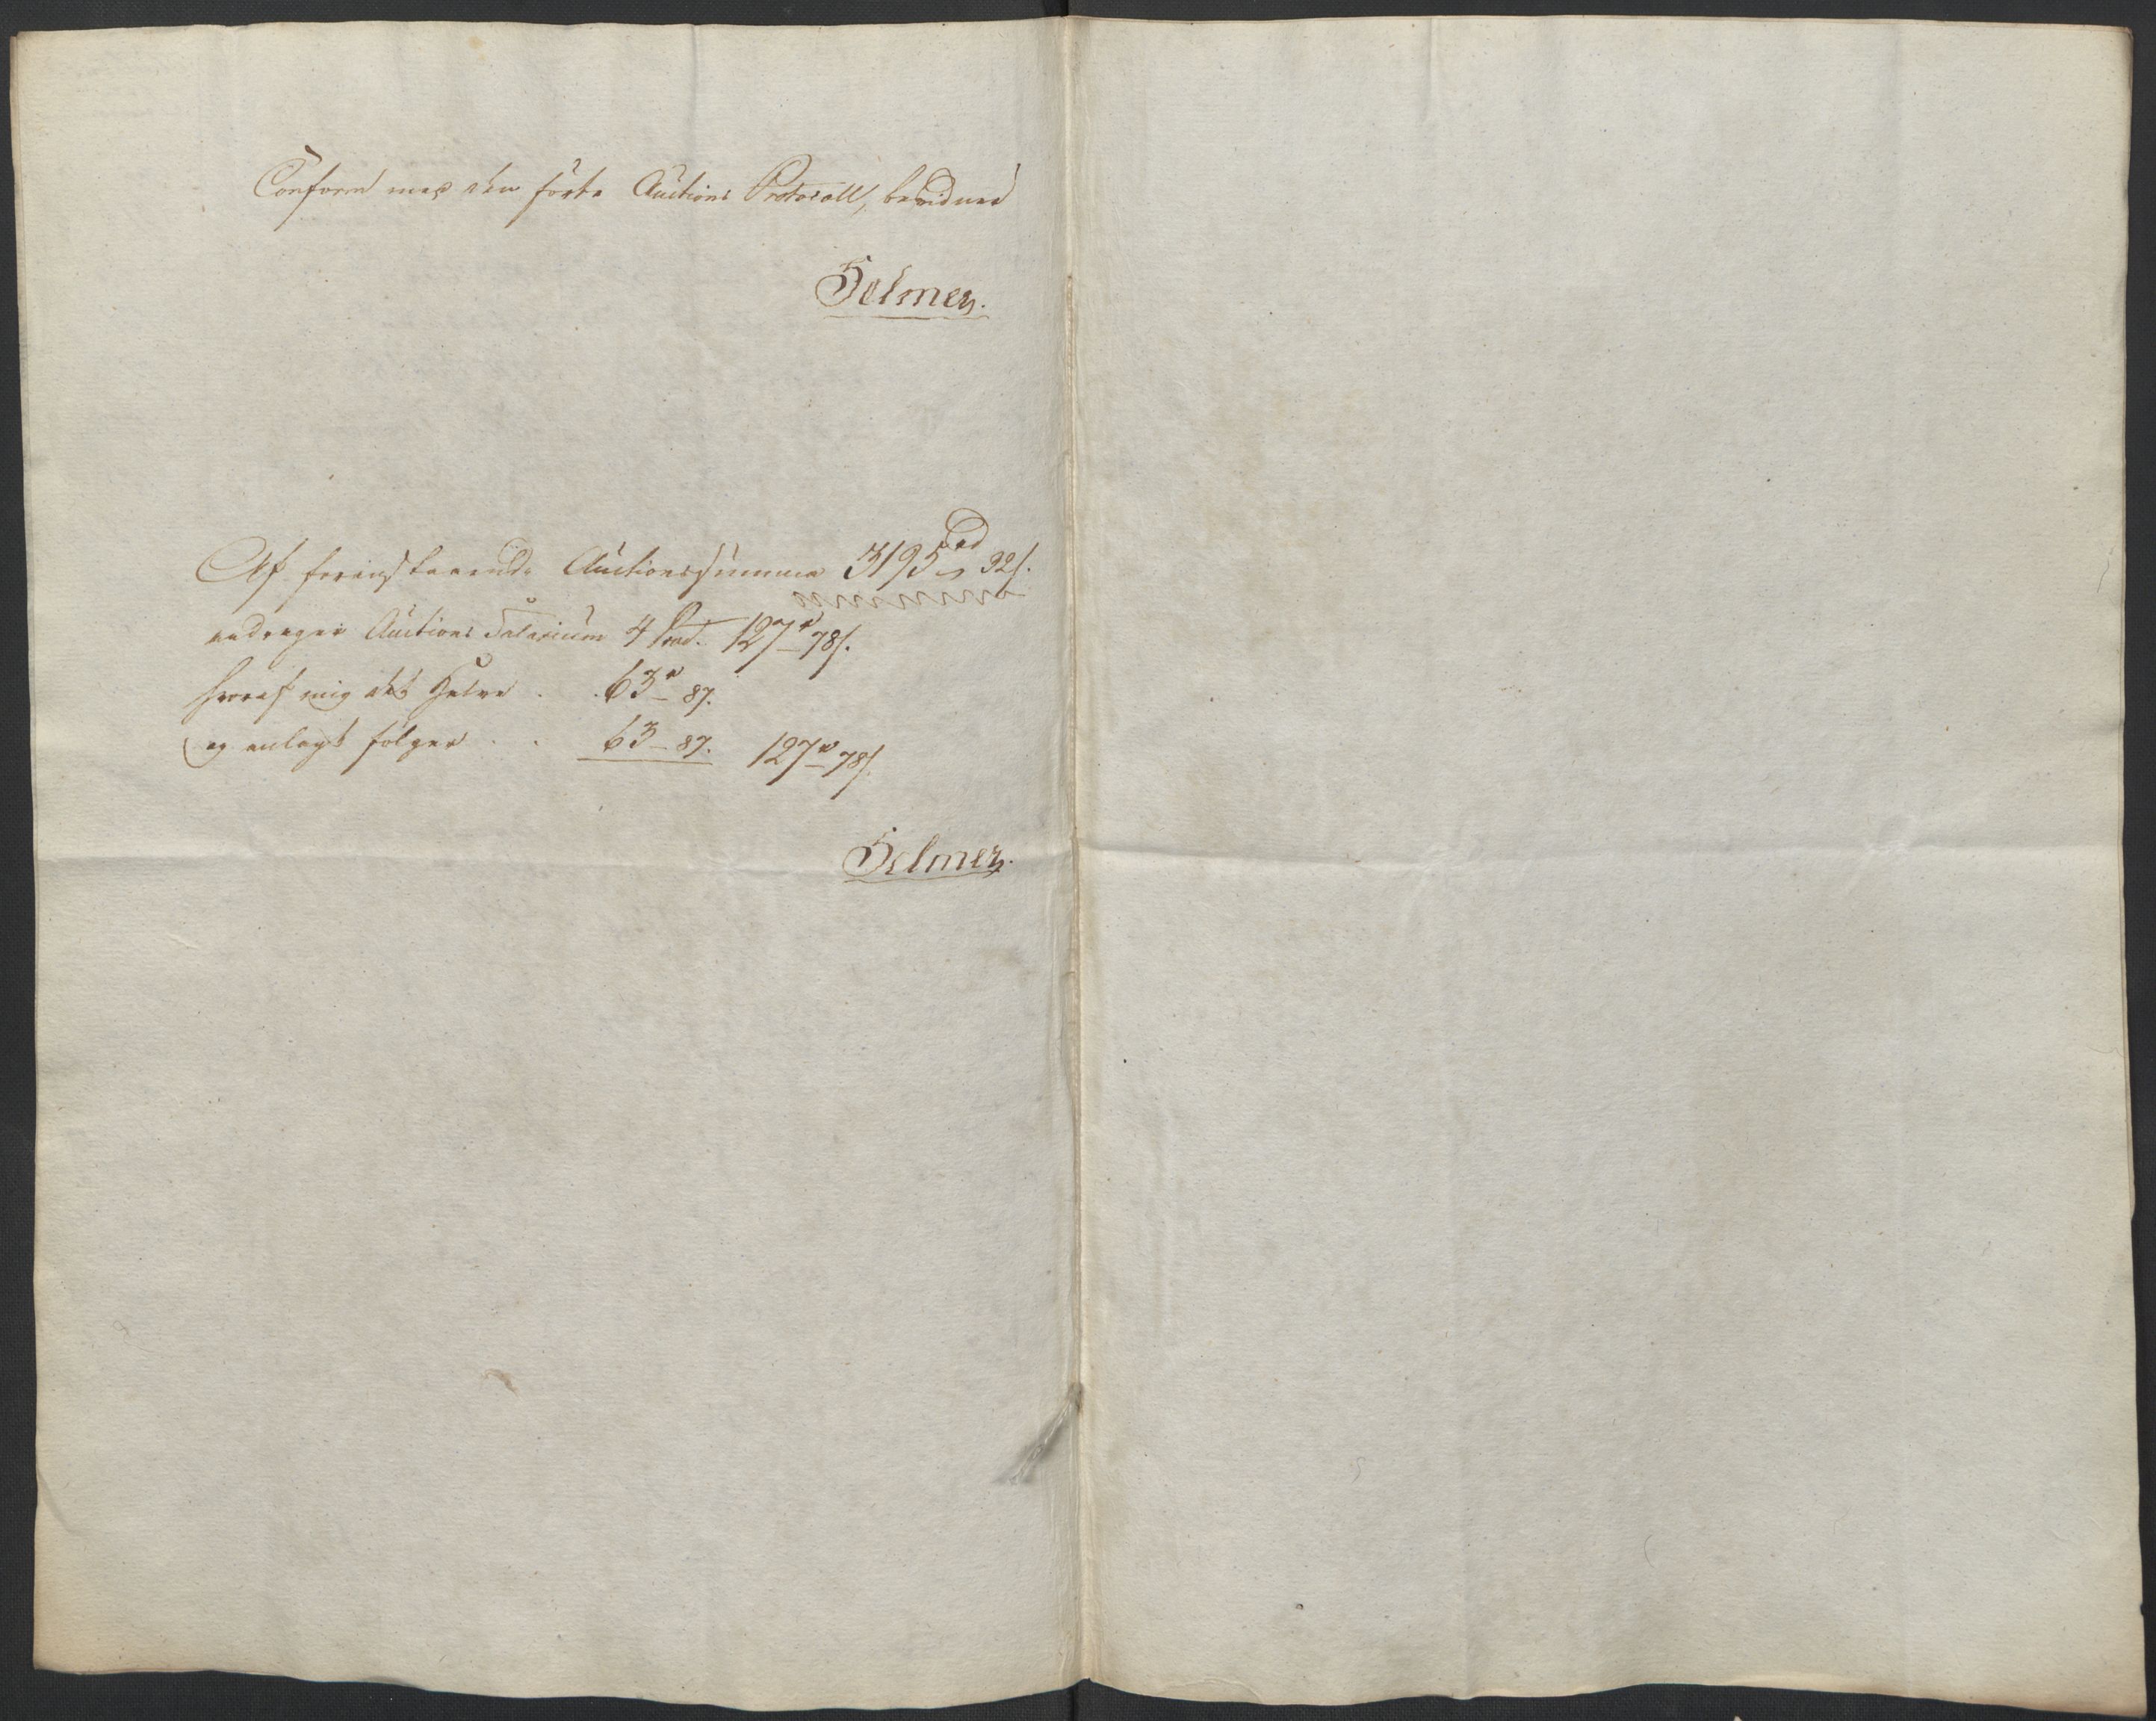 Conform med den førte Auctions Protocoll, bevidner
Selmer.
Af foranstaaende Auctionssumma 3195 rd 32 s.
andrager Auctions Salarium 4 Procd. 127 r 78 s.
hvoraf mig det Halve . . 63 r 87.
og anlagt følger . . 63 - 87. 127 r 78 s.
Selmer.